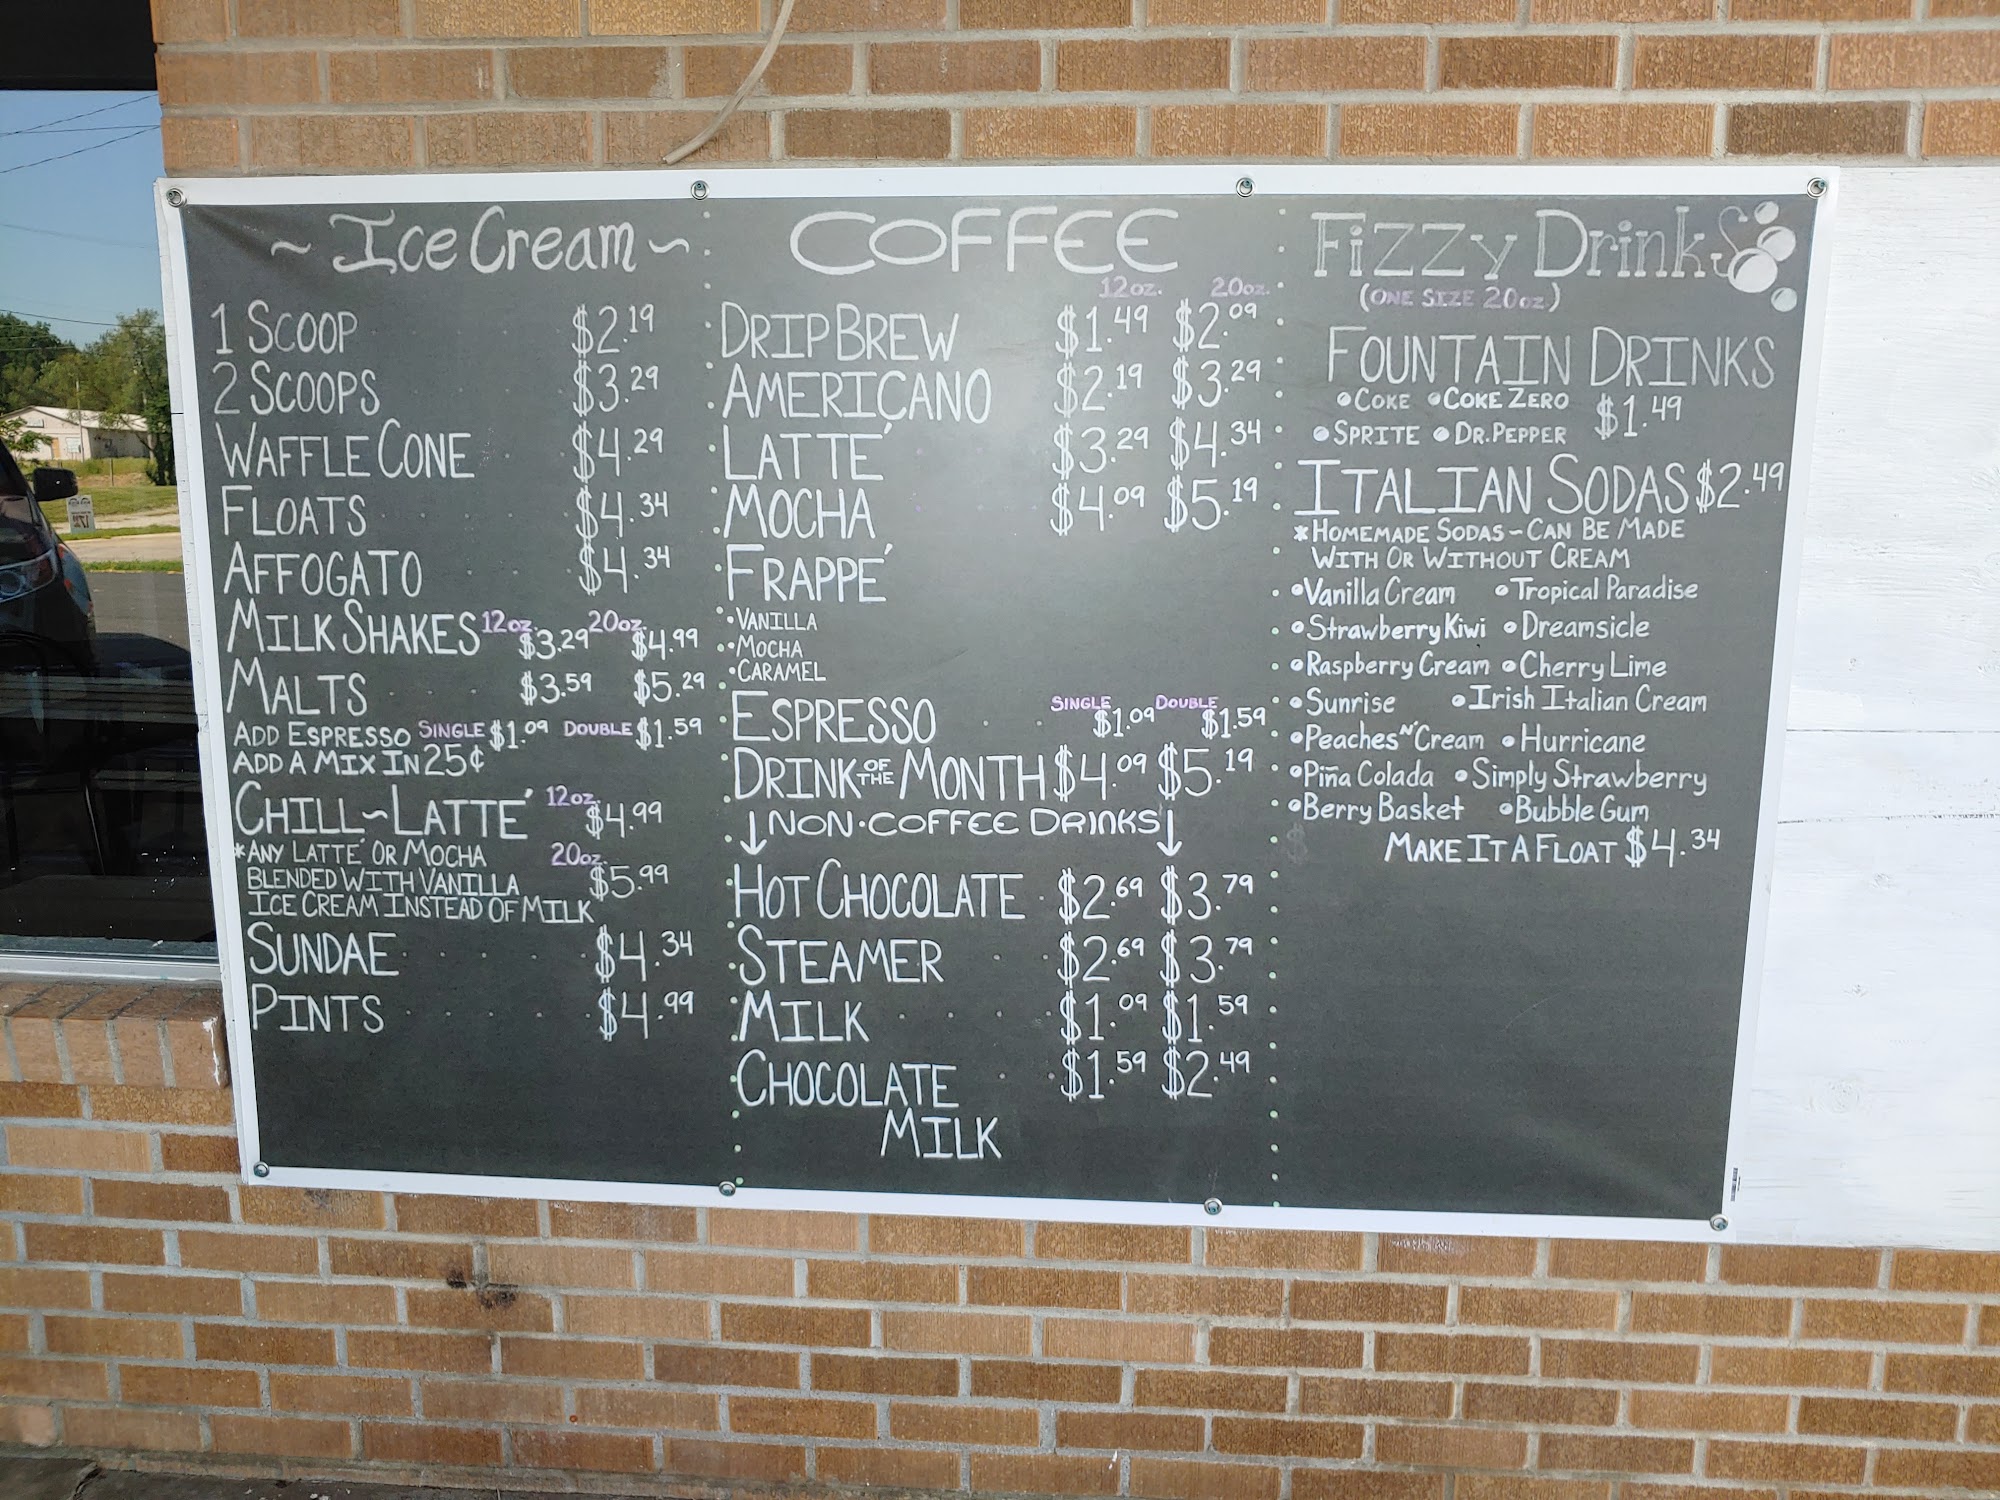 ~ Ice Cream ~
1 SCOOP $2.19
2 SCOOPS $3.29
WAFFLE CONE $4.29
FLOATS $4.34
AFFOGATO $4.34
MILKSHAKES 12oz. $3.29 20oz. $4.99
MALTS $3.59 $5.29
ADD ESPRESSO SINGLE $1.09 DOUBLE $1.59
ADD A MIX IN 25¢
CHILL~LATTÉ 12oz. $4.99
*ANY LATTÉ OR MOCHA 20oz. $5.99
BLENDED WITH VANILLA
ICE CREAM INSTEAD OF MILK
SUNDAE $4.34
PINTS $4.99
COFFEE
12oz. 20oz.
DRIP BREW $1.49 $2.09
AMERICANO $2.19 $3.29
LATTÉ $3.29 $4.34
MOCHA $4.09 $5.19
FRAPPÉ
•VANILLA
•MOCHA
•CARAMEL
ESPRESSO SINGLE $1.09 DOUBLE $1.59
DRINK OF THE MONTH $4.09 $5.19
↓NON-COFFEE DRINKS↓
HOT CHOCOLATE $2.69 $3.79
STEAMER $2.69 $3.79
MILK $1.09 $1.59
CHOCOLATE $1.59 $2.49
MILK
Fizzy Drinks
(ONE SIZE 20oz.)
FOUNTAIN DRINKS
•COKE •COKE ZERO $1.49
•SPRITE •DR. PEPPER
ITALIAN SODAS $2.49
*HOMEMADE SODAS~CAN BE MADE
WITH OR WITHOUT CREAM
•Vanilla Cream •Tropical Paradise
•Strawberry Kiwi •Dreamsicle
•Raspberry Cream •Cherry Lime
•Sunrise •Irish Italian Cream
•Peaches~N~Cream •Hurricane
•Piña Colada •Simply Strawberry
•Berry Basket •Bubble Gum
MAKE IT A FLOAT $4.34